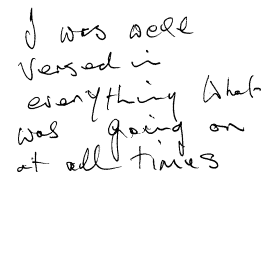 I was well
versed in
everything what
was going on
at all times